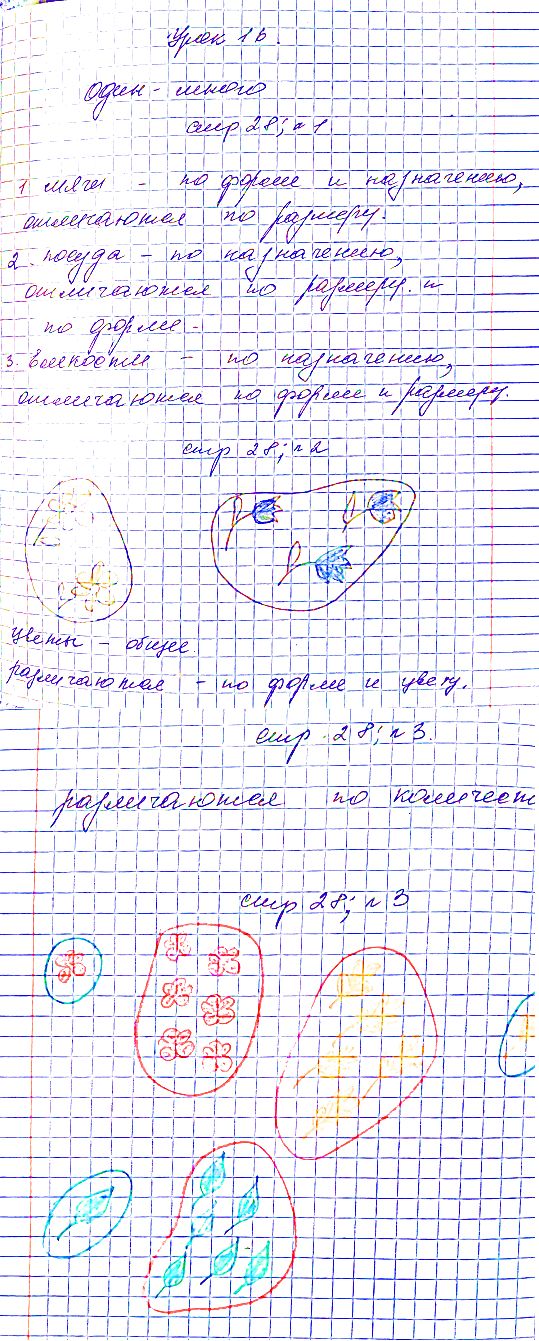 Урок 16.
Один - много
стр 28; № 1
1 мячи - по форме и назначению,
отличаются по размеру.
2. посуда - по назначению,
отличаются по размеру. и
по форме -
3. ёмкости - по назначению,
отличаются по форме и размеру.
стр 28; № 2
цветы - общее
различаются - по форме и цвету.
стр. 28; № 3.
различаются по количест
стр 28; № 3